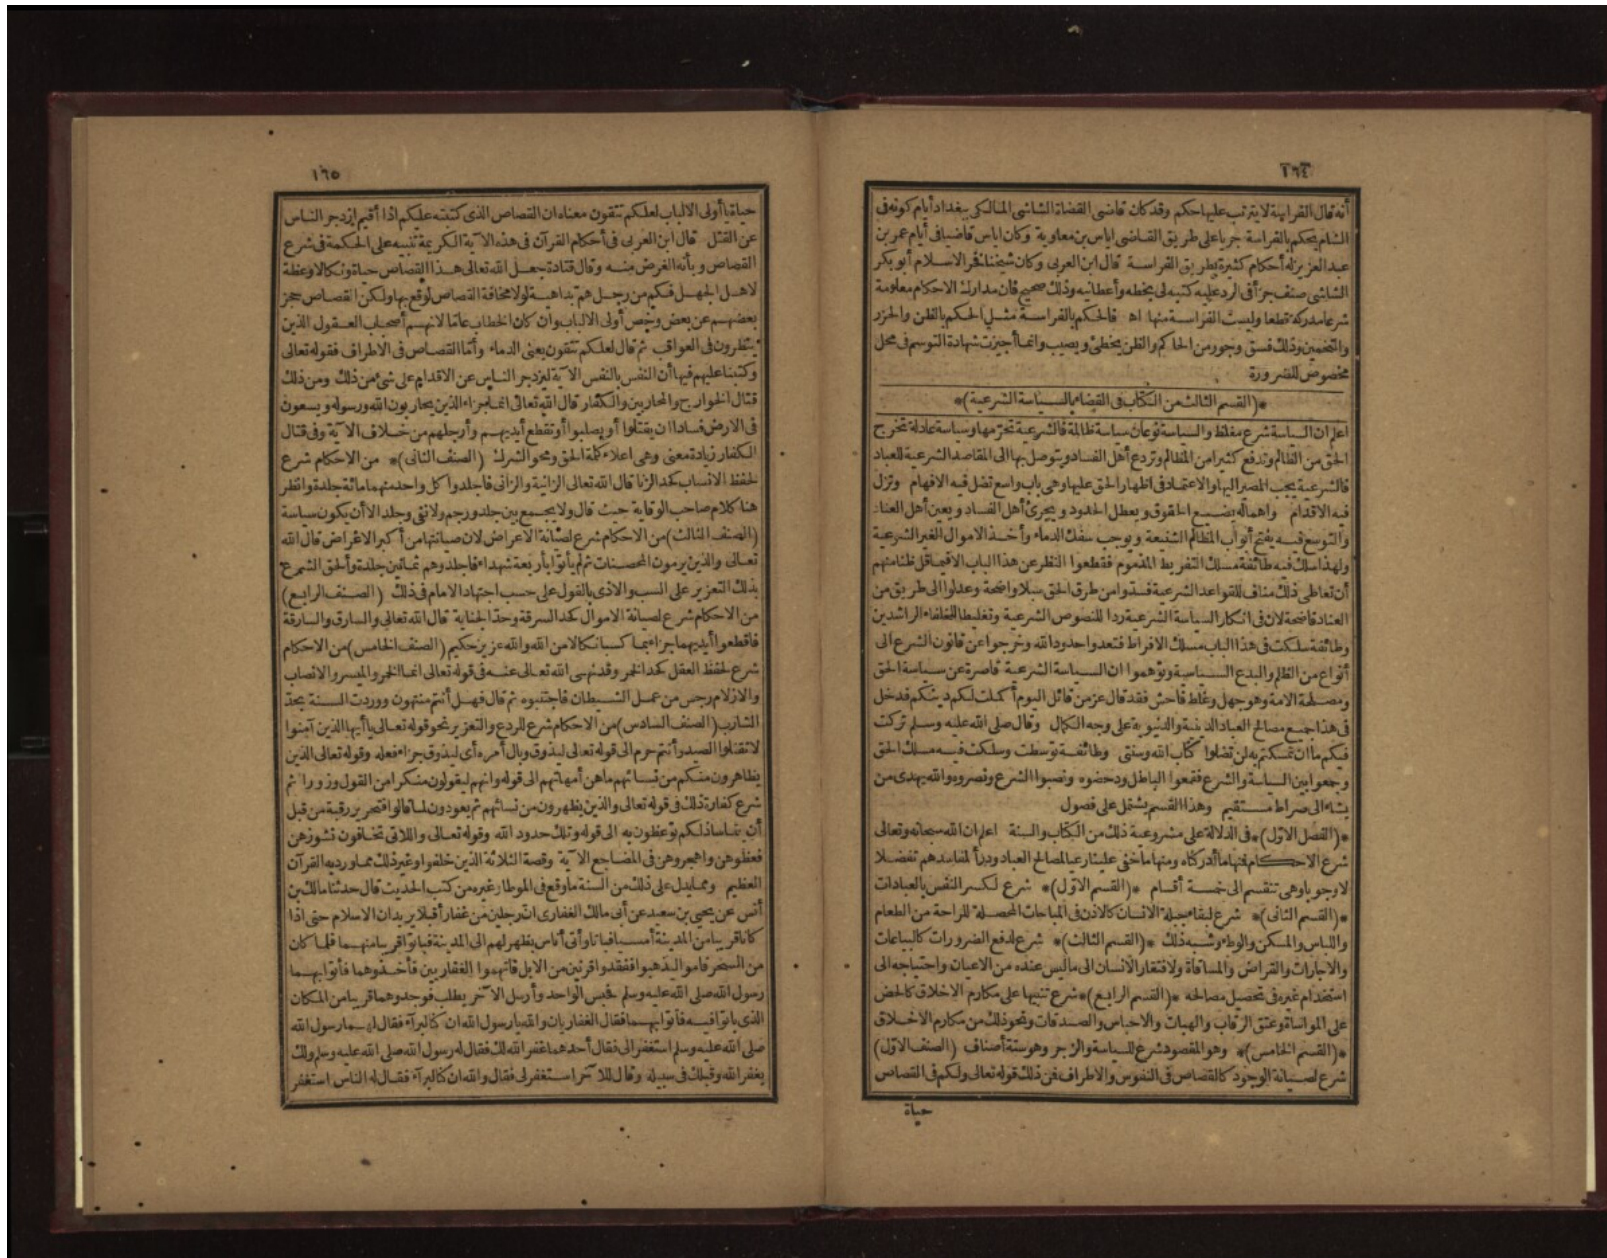 ١٦٤
أنه قال الفراسة لا يترتب عليها حكم وقد كان قاضى القضاة الشاشى المالكى ببغداد أيام كونه فى
الشام يحكم بالفراسة جريا على طريق القاضى اياس بن معاوية وكان اياس قاضيا فى أيام عمر بن
عبد العزيز له أحكام كثيرة بطريق الفراسة قال ابن العربى وكان شيخنا فخر الاسلام أبو بكر
الشاشى صنف جزأ فى الرد عليه كتبه لى بخطه وأعطانيه وذلك صحيح فان مدارك الاحكام معلومة
شرعا مدركة قطعا وليست الفراسة منها اه فالحكم بالفراسة مثل الحكم بالظن والحزر
والتخمين وذلك فسق وجور من الحاكم والظن يخطئ ويصيب وانما أجيزت شهادة التوسم فى محل
مخصوص للضرورة
*(القسم الثالث من الكتاب فى القضاء بالسياسة الشرعية)*
اعلم ان السياسة شرع مغلظ والسياسة نوعان سياسة ظالمة فالشرعية تحرمها وسياسة عادلة تخرج
الحق من الظالم وتدفع كثيرا من المظالم وتردع أهل الفساد ويتوصل بها الى المقاصد الشرعية للعباد
فالشرعية يجب المصير اليها والاعتماد فى اظهار الحق عليها وهى باب واسع تضل فيه الافهام وتزل
فيه الاقدام واهماله يضيع الحقوق ويعطل الحدود ويجرئ أهل الفساد ويعين أهل العناد
والتوسع فيه يفتح أبواب المظالم الشنيعة ويوجب سفك الدماء وأخذ الاموال الغير الشرعية
ولهذا سلك فيه طائفة مسلك التفريط المذموم فقطعوا النظر عن هذا الباب الا فيما قل ظنا منهم
أن تعاطى ذلك مناف للقواعد الشرعية فسدوا من طرق الحق سبلا واضحة وعدلوا الى طريق من
العناد فاضحة لان فى انكار السياسة الشرعية ردا للنصوص الشرعية وتغليطا للخلفاء الراشدين
وطائفة سلكت فى هذا الباب مسلك الافراط فتعدوا حدود الله وخرجوا عن قانون الشرع الى
أنواع من الظلم والبدع السياسية وتوهموا ان السياسة الشرعية قاصرة عن سياسة الحق
ومصلحة الامة وهو جهل وغلط فاحش فقد قال عز من قائل اليوم أكملت لكم دينكم فدخل
فى هذا جميع مصالح العباد الدينية والدنيوية على وجه الكمال وقال صلى الله عليه وسلم تركت
فيكم ما ان تمسكتم به لن تضلوا كتاب الله وسنتى وطائفة توسطت وسلكت فيه مسلك الحق
وجمعوا بين السياسة والشرع فقمعوا الباطل ودحضوه ونصبوا الشرع ونصروه والله يهدى من
يشاء الى صراط مستقيم وهذا القسم يشتمل على فصول
*(الفصل الاول)* فى الدلالة على مشروعية ذلك من الكتاب والسنة اعلم ان الله سبحانه وتعالى
شرع الاحكام فمنها ما أدركناه ومنها ما خفى علينا رعيا لمصالح العباد ودرأ لمفاسدهم تفضلا
لا وجوبا وهى تنقسم الى خمسة أقسام *(القسم الاول)* شرع لكسر النفس بالعبادات
*(القسم الثانى)* شرع لبقاء جبلة الانسان كالاذن فى المباحات المحصلة للراحة من الطعام
واللباس والمسكن والوطء وشبه ذلك *(القسم الثالث)* شرع لدفع الضرورات كالبياعات
والاجارات والقراض والمساقاة ولافتقار الانسان الى ما ليس عنده من الاعيان واحتياجه الى
استخدام غيره فى تحصيل مصالحه *(القسم الرابع)* شرع تنبيها على مكارم الاخلاق كالحض
على المواساة وعتق الرقاب والهبات والاحباس والصدقات ونحو ذلك من مكارم الاخلاق
*(القسم الخامس)* وهو المقصود شرع للسياسة والزجر وهو ستة أصناف (الصنف الاول)
شرع لصيانة الوجود كالقصاص فى النفوس والاطراف فمن ذلك قوله تعالى ولكم فى القصاص
حياة
١٦٥
حياة يا أولى الالباب لعلكم تتقون معناه ان القصاص الذى كتبته عليكم اذا أقيم ازدجر الناس
عن القتل قال ابن العربى فى أحكام القرآن فى هذه الآية الكريمة تنبيه على الحكمة فى شرع
القصاص وبأنه الغرض منه وقال قتادة جعل الله تعالى هذا القصاص حياة ونكالا وعظة
لاهل الجهل فكم من رجل هم بداهية لولا مخافة القصاص لوقع بها ولكن القصاص حجز
بعضهم عن بعض وخص أولى الالباب وان كان الخطاب عاما لانهم أصحاب العقول الذين
ينظرون فى العواقب ثم قال لعلكم تتقون يعنى الدماء وأما القصاص فى الاطراف فقوله تعالى
وكتبنا عليهم فيها أن النفس بالنفس الآية ليزدجر الناس عن الاقدام على شئ من ذلك ومن ذلك
قتال الخوارج والمحاربين والكفار قال الله تعالى انما جزاء الذين يحاربون الله ورسوله ويسعون
فى الارض فسادا ان يقتلوا أو يصلبوا أو تقطع أيديهم وأرجلهم من خلاف الآية وفى قتال
الكفار زيادة معنى وهى اعلاء كلمة الحق ومحو الشرك (الصنف الثانى)* من الاحكام شرع
لحفظ الانساب كحد الزنا قال الله تعالى الزانية والزانى فاجلدوا كل واحد منهما مائة جلدة وانظر
هنا كلام صاحب الوقاية حيث قال ولا يجمع بين جلد ورجم ولا نفى وجلد الا أن يكون سياسة
(الصنف الثالث) من الاحكام شرع لصيانة الاعراض لان صيانتها من أكبر الاغراض قال الله
تعالى والذين يرمون المحصنات ثم لم يأتوا بأربعة شهداء فاجلدوهم ثمانين جلدة وألحق الشرع
بذلك التعزير على السب والاذى بالقول على حسب اجتهاد الامام فى ذلك (الصنف الرابع)
من الاحكام شرع لصيانة الاموال كحد السرقة وحد الجناية قال الله تعالى والسارق والسارقة
فاقطعوا أيديهما جزاء بما كسبا نكالا من الله والله عزيز حكيم (الصنف الخامس) من الاحكام
شرع لحفظ العقل كحد الخمر وقد نهى الله تعالى عنه فى قوله تعالى انما الخمر والميسر والانصاب
والازلام رجس من عمل الشيطان فاجتنبوه ثم قال فهل أنتم منتهون ووردت السنة بحد
الشارب (الصنف السادس) من الاحكام شرع للردع والتعزير نحو قوله تعالى يا أيها الذين آمنوا
لا تقتلوا الصيد وأنتم حرم الى قوله تعالى ليذوق وبال أمره أى ليذوق جزاء فعله وقوله تعالى الذين
يظاهرون منكم من نسائهم ما هن أمهاتهم الى قوله وانهم ليقولون منكرا من القول وزورا ثم
شرع كفارة ذلك فى قوله تعالى والذين يظهرون من نسائهم ثم يعودون لما قالوا فتحرير رقبة من قبل
أن يتماسا ذلكم توعظون به الى قوله وتلك حدود الله وقوله تعالى واللاتى تخافون نشوزهن
فعظوهن واهجروهن فى المضاجع الآية وقصة الثلاثة الذين خلفوا وغير ذلك مما ورد به القرآن
العظيم ومما يدل على ذلك من السنة ما وقع فى الموطا وغيره من كتب الحديث قال حدثنا مالك بن
أنس عن يحيى بن سعيد عن أبى مالك الغفارى ان رجلين من غفار أقبلا يريدان الاسلام حتى اذا
كانا قريبا من المدينة أمسيا فباتا وأتى أناس بظهر لهم الى المدينة فباتوا قريبا منهما فلما كان
من السحر قاموا ليذهبوا ففقدوا قرنين من الابل فاتهموا الغفاريين فأخذوهما فأتوا بهما
رسول الله صلى الله عليه وسلم فحبس الواحد وأرسل الآخر يطلب فوجدوهما قريبا من المكان
الذى باتوا فيه فأتوا بهما فقال الغفاريان والله يا رسول الله ان كنا لبرآء فقال لهما رسول الله
صلى الله عليه وسلم استغفر الى فقال أحدهما غفر الله لك فقال له رسول الله صلى الله عليه وسلم ولك
يغفر الله وقتلك فى سبيله وقال للآخر استغفر لى فقال والله ان كنا لبرآء فقال له الناس استغفر